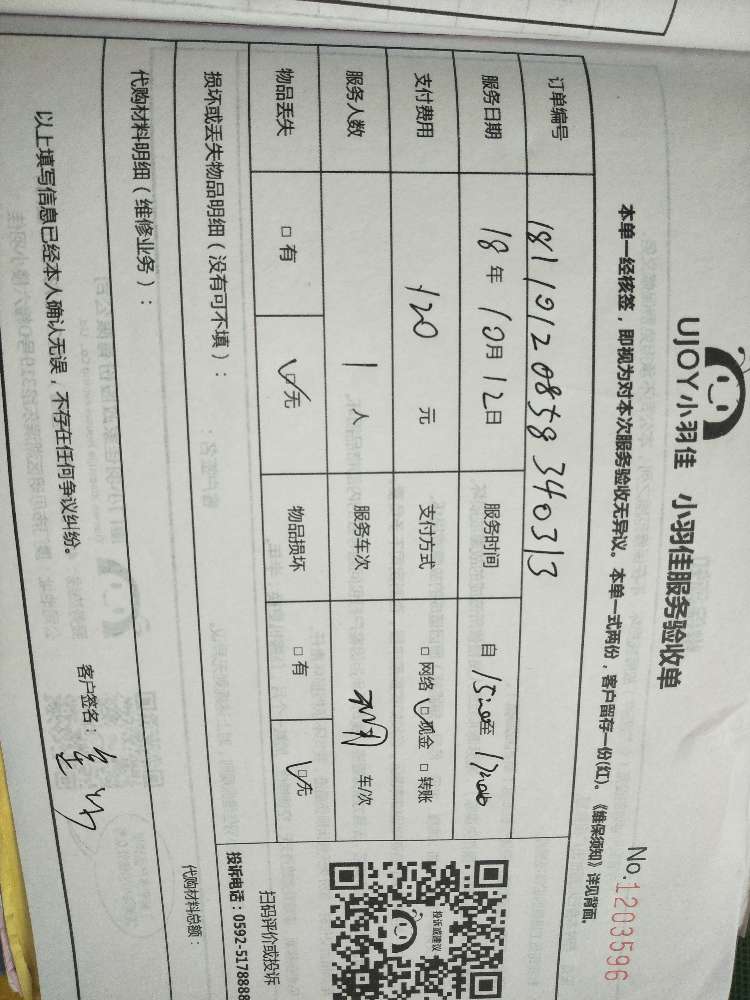 UJOY小羽佳 小羽佳服务验收单
No.1203596
本单一经核签，即视为对本次服务验收无异议。本单一式两份，客户留存一份(红)。《维保须知》详见背面。
订单编号 18110120858340313
服务日期 18年10月12日 服务时间 自 至
支付费用 120元 支付方式 □网络 □现金 □转账
服务人数 1人 服务车次 车/次
物品丢失 □有 □无 物品损坏 □有 □无
投诉或建议
扫码评价或投诉
投诉电话：0592-5178888
损坏或丢失物品明细（没有可不填）：
代购材料明细（维修业务）： 代购材料总额：
以上填写信息已经本人确认无误，不存在任何争议纠纷。 客户签名：